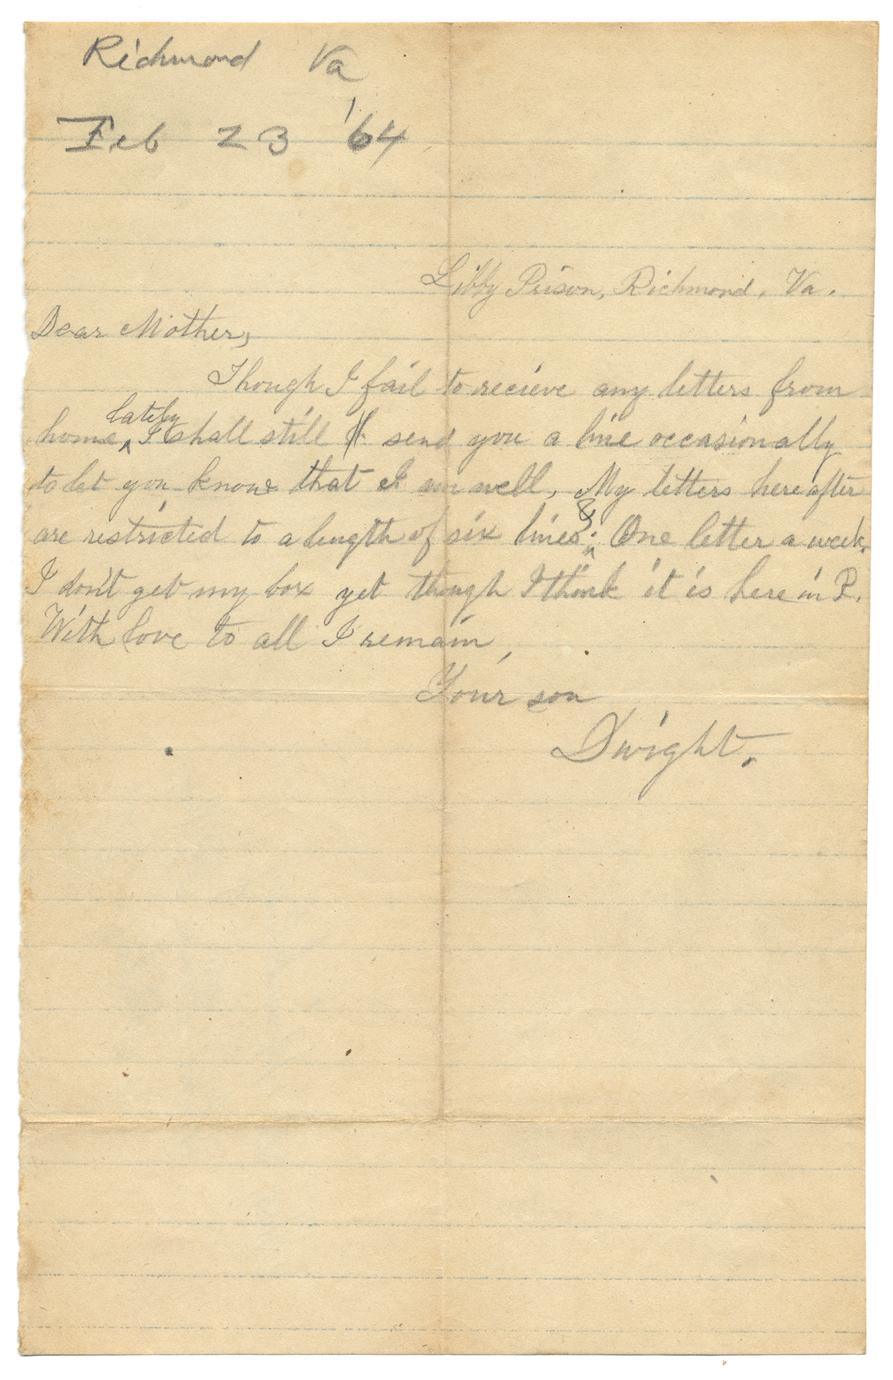 Richmond Va
Feb 23 '64
Libby Prison, Richmond, Va.
Dear Mother,
Though I fail to recieve any letters from
home, lately I shall still send you a line occasionally
to let you know that I am well, My letters hereafter
are restricted to a length of six lines; & One letter a week.
I don't get my box yet though I think it is here in R.
With love to all I remain,
Your son
Dwight.